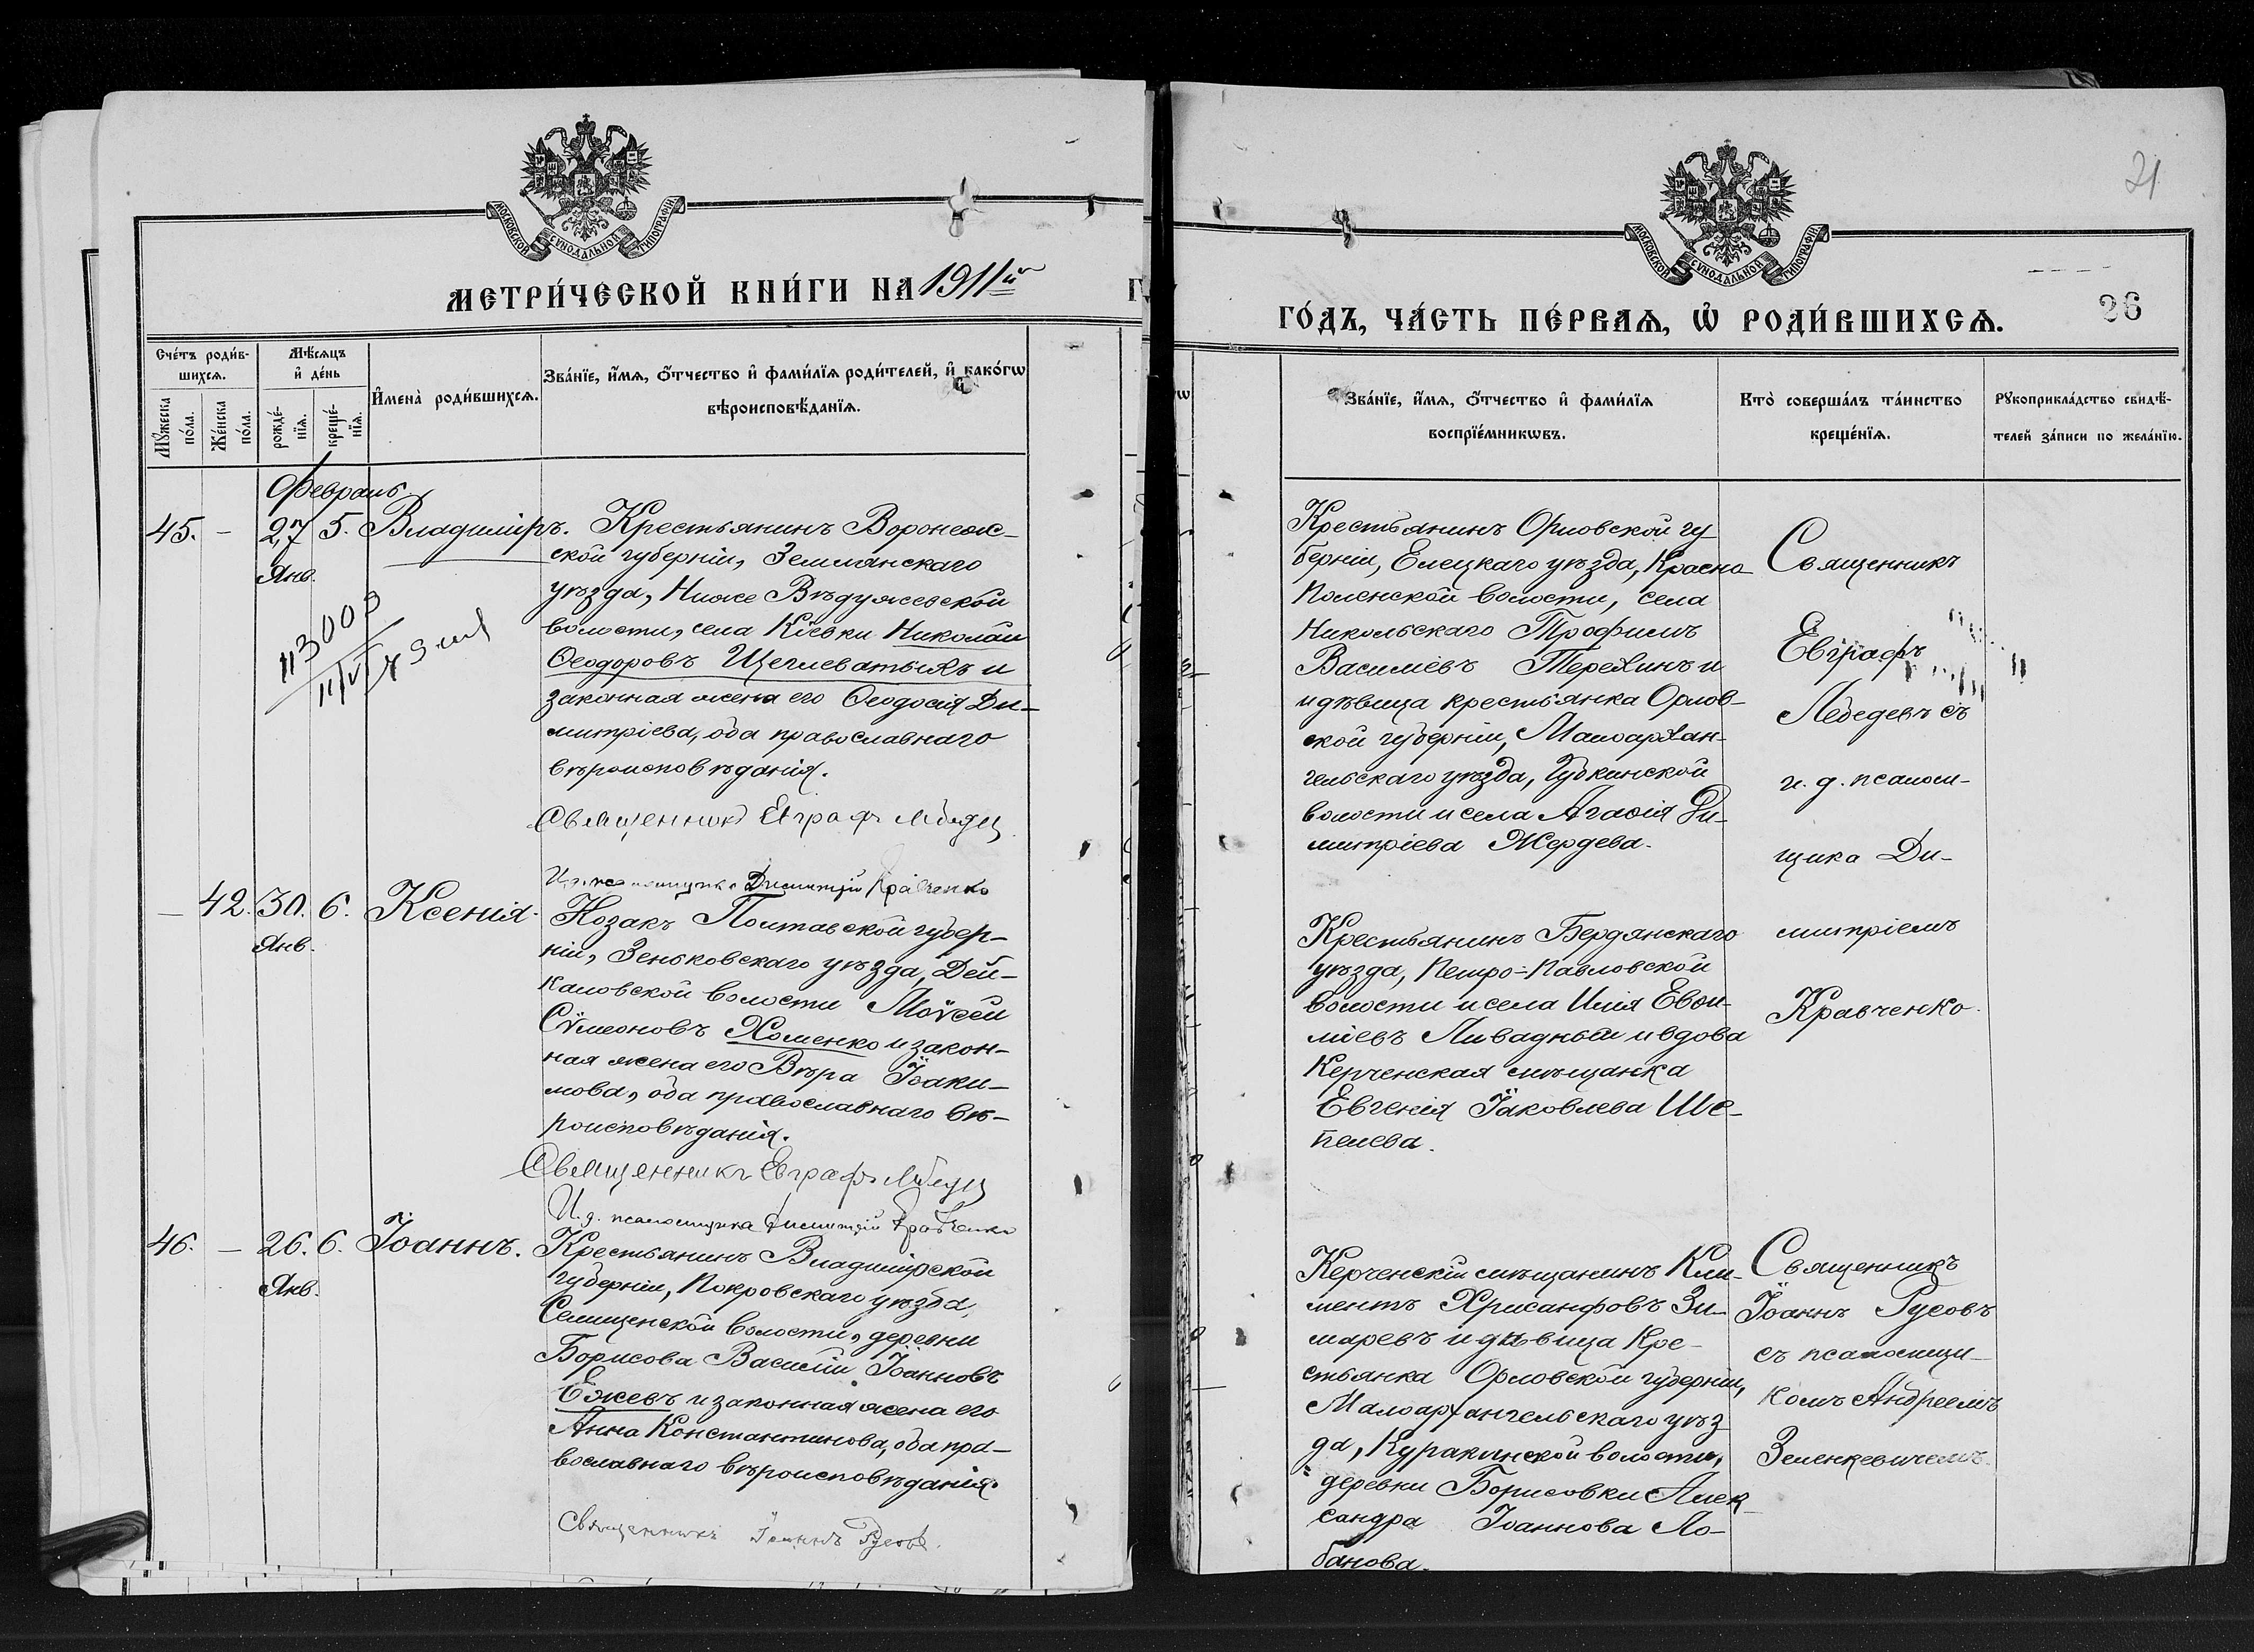 МОСКОВСКОЙ СѴНОДАЛЬНОЙ ТИПОГРАФІИ
МЕТРИ́ЧЕСКОЙ КНИ́ГИ НА 1911й
Счéтъ роди́в-
шихсѧ.
Мѣ́сѧцъ
и҆ дéнь
И҆менà роди́вшихсѧ.
Звáнїе, и҆́мѧ, ѻ҆́тчество и҆ фами́лїѧ роди́телей, и҆ какóгѡ
вѣроисповѣ́данїѧ.
Мꙋ́жеска
пóла.
Жéнска
пóла.
рождé-
нїѧ.
крещé-
нїѧ.
Февраль.
45. – 27 5. Владиміръ. Крестьянинъ Воронеж-
Янв.
ской губерніи, Землянскаго
уѣзда, Ниже Вѣдужевской
волости, села Кіевки Николай
Ѳеодоровъ Щеглеватыхъ и
законная жена его Ѳеодосія Ди-
митріева, оба православнаго
вѣроисповѣданія.
Священникъ Евграфъ Лебедев
И. д. псаломщика Димитрій Кравченко
– 42. 30. 6. Ксенія. Козакъ Полтавской губер-
Янв.
ніи, Зеньковскаго уѣзда, Дей-
каловской волости Моѵсей
Сѵмеоновъ Хоменко и закон-
ная жена его Вѣра Іоаки-
мова, оба православнаго вѣ-
роисповѣданія.
Священникъ Евграфъ Лебедев
И. д. псаломщика Димитрій Кравченко
46. – 26. 6. Іоаннъ. Крестьянинъ Владимірской
Янв.
губерніи, Покровскаго уѣзда,
Селищенской волости, деревни
Борисова Василій Іоанновъ
Ежевъ и законная жена его
Анна Константинова, оба пра-
вославнаго вѣроисповѣданія.
Священникъ Іоаннъ Русовъ.
21
МОСКОВСКОЙ СѴНОДАЛЬНОЙ ТИПОГРАФІИ
26
ГÓДЪ, ЧÁСТЬ ПÉРВАѦ, Ѡ҆ РОДИ́ВШИХСѦ.
Звáнїе, и҆́мѧ, ѻ҆́тчество и҆ фами́лїѧ
воспрїéмникѡвъ.
Ктò совершáлъ тáинство
крещéнїѧ.
Рꙋкоприклáдство свидѣ́-
телей зáписи по желáнїю.
Крестьянинъ Орловской гу-
берніи, Елецкаго уѣзда, Красно-
Поленской волости, села
Никольскаго Трофимъ
Василіевъ Терехинъ и
и дѣвица крестьянка Орлов-
ской губерніи, Малоархан-
гельскаго уѣзда, Губкинской
волости и села Агаѳія Ди-
митріева Жердева.
Священникъ
Евграфъ
Лебедевъ съ
и. д. псалом-
щика Ди-
митріемъ
Кравченко.
Крестьянинъ Бердянскаго
уѣзда, Петро-Павловской
волости и села Илія Евѳи-
міевъ Ливадный и вдова
Керченская мѣщанка
Евгенія Іаковлева Ше-
пелева.
Керченскій мѣщанинъ Кли-
ментъ Хрисанфовъ Зи-
маревъ и дѣвица Кре-
стьянка Орловской губерніи,
Малоархангельскаго уѣз-
да, Куракинской волости,
деревни Борисовки Алек-
сандра Іоаннова Ло-
банова.
Священникъ
Іоаннъ Русовъ
съ псаломщи-
комъ Андреемъ
Зеленкевичемъ.